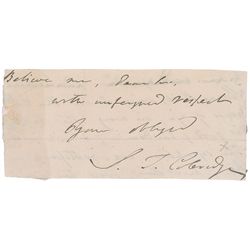 Believe me, dear Sir,
with unfeigned respect
Your obliged
S. T. Coleridge